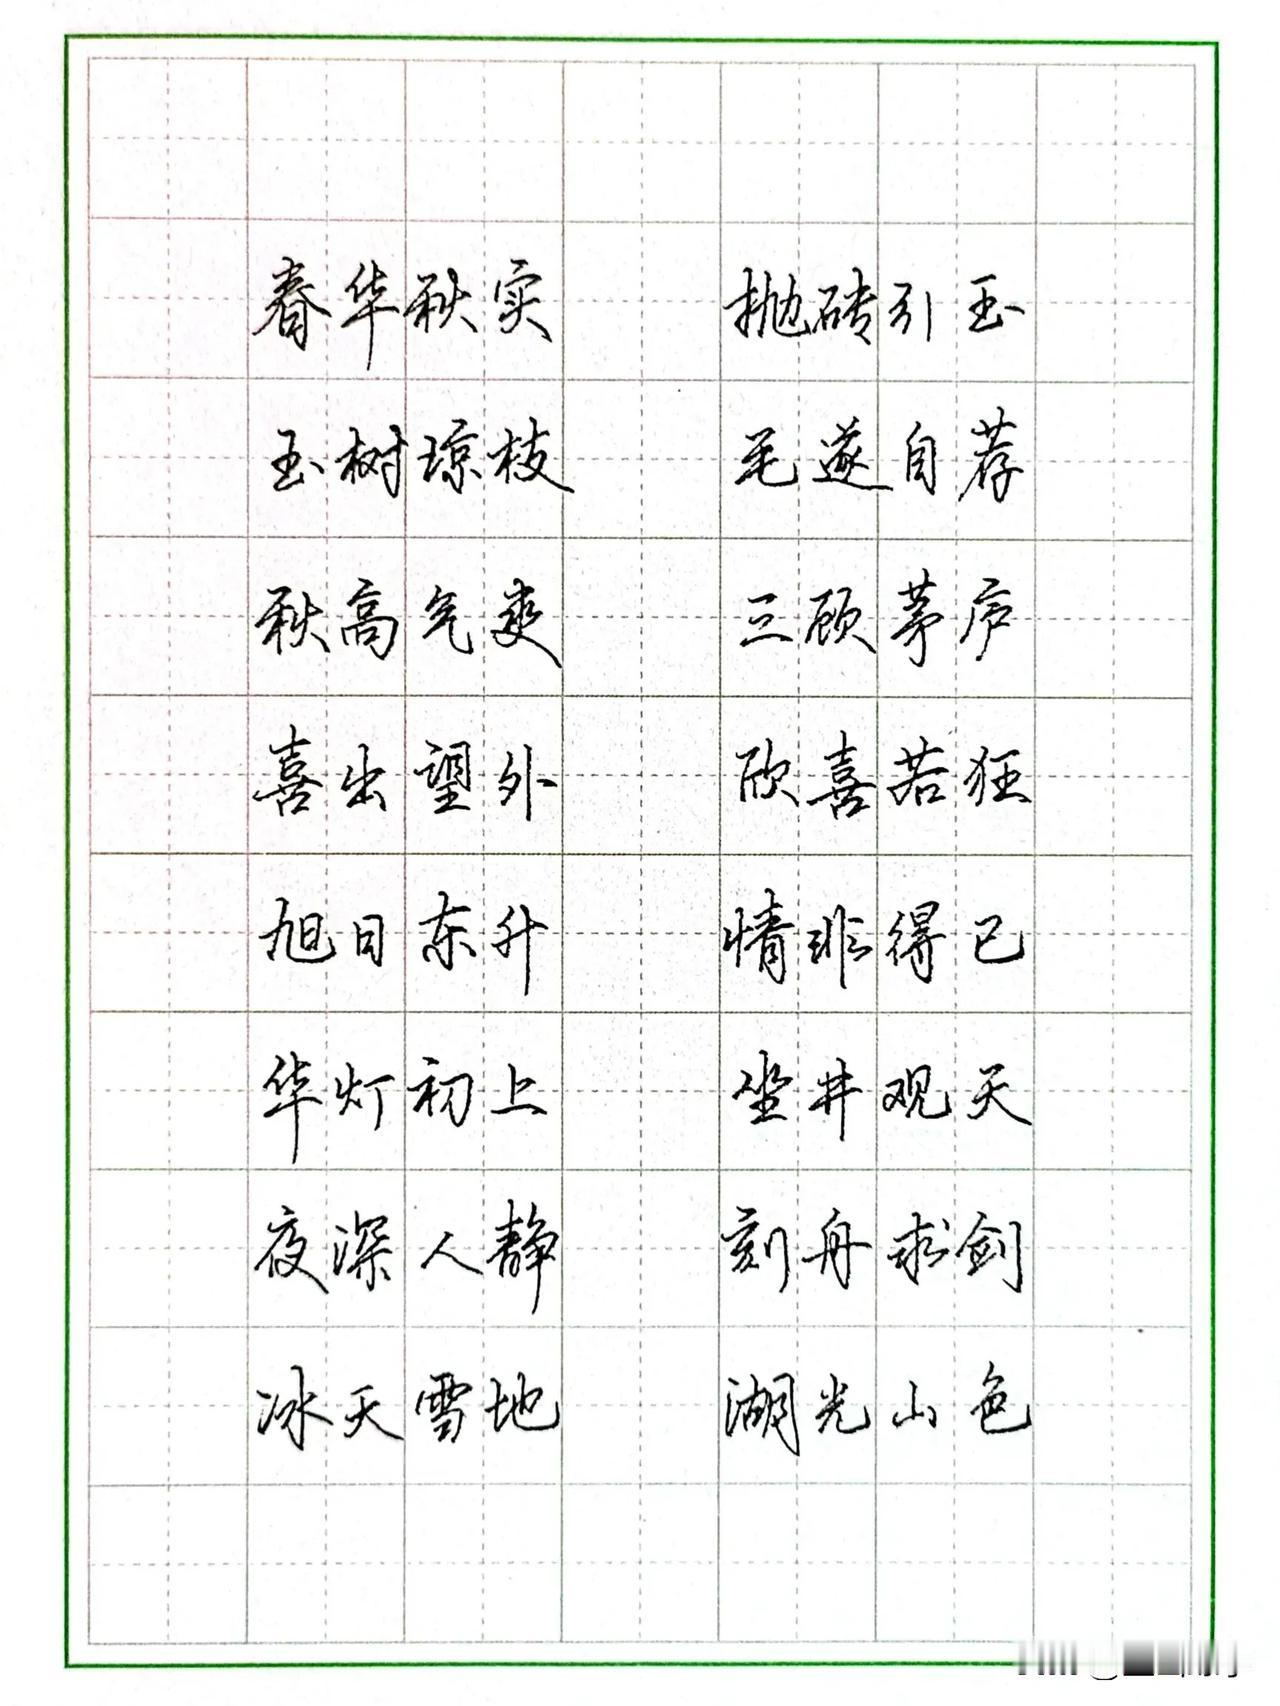 春华秋实 抛砖引玉
玉树琼枝 毛遂自荐
秋高气爽 三顾茅庐
喜出望外 欣喜若狂
旭日东升 情非得已
华灯初上 坐井观天
夜深人静 刻舟求剑
冰天雪地 湖光山色